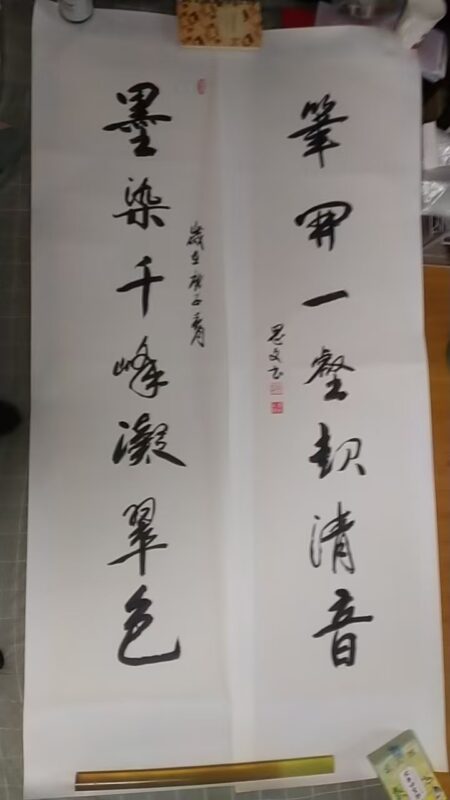 墨染千峰凝翠色
歲在庚子
筆開一壑起清音
思文书